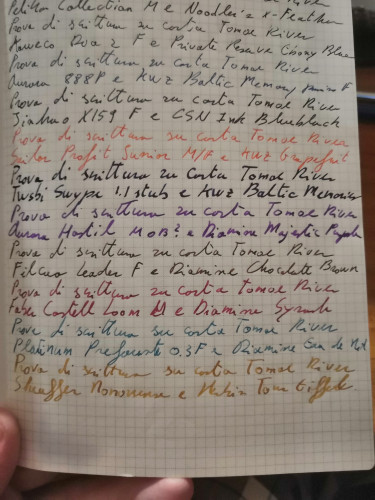 Collection M e Noodler's X-Feather
Prova di scrittura su carta Tomoe River
Duo 2 F e Private Reserve Ebony Blue
Prova di scrittura su carta Tomoe River
Aurora 888P e KWZ Baltic Memory F
Prova di scrittura su carta Tomoe River
Jinhao X159 F e CSN Ink Blueblack
Prova di scrittura su carta Tomoe River
Sailor Profit Junior M/F e KWZ Grapefruit
Prova di scrittura su carta Tomoe River
Twsbi Swype 1.1 stub e KWZ Baltic Memories
Prova di scrittura su carta Tomoe River
Aurora Hastil e Diamine Majestic Purple
Prova di scrittura su carta Tomoe River
Filcao Leader F e Diamine Chocolate Brown
Prova di scrittura su carta Tomoe River
Faber Castell Loom e Diamine Syrah
Prova di scrittura su carta Tomoe River
Platinum Preferente 0.3 F e Diamine Eau de Nil
Prova di scrittura su carta Tomoe River
Sheaffer Nononsense e Tour Eiffel